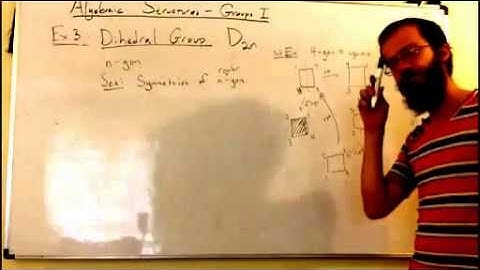 Algebraic Structures - Groups I
Ex 3. Dihedral Group D2n
n-gon
Set: Symmetries of regular n-gon.
Ex: 4-gon = square